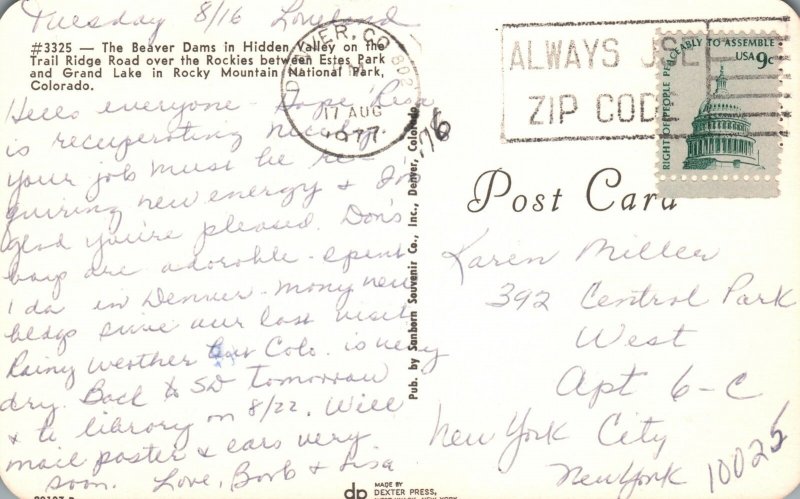 Tuesday 8/16 Loveland
#3325 — The Beaver Dams in Hidden Valley on the
Trail Ridge Road over the Rockies between Estes Park
and Grand Lake in Rocky Mountain National Park,
Colorado.
Hello everyone - Hope Lisa
is recuperating nicely.
Your job must be re-
quiring new energy & I'm
glad you're pleased. Don's
boys are adorable - spent
1 da in Denver - many new
bldgs since our last visit
Rainy weather but Colo. is very
dry. Back to SD tomorrow
& to library on 8/22. Will
mail poster & ears very
soon. Love, Barb & Lisa
DENVER, CO 802
PM
17 AUG
1977
ALWAYS USE
ZIP CODE
RIGHT OF PEOPLE PEACEABLY TO ASSEMBLE
USA 9c
Pub. by Sanborn Souvenir Co., Inc., Denver, Colorado
Post Card
Karen Miller
392 Central Park
West
Apt 6-C
New York City
New York 10025
dp MADE BY
DEXTER PRESS,